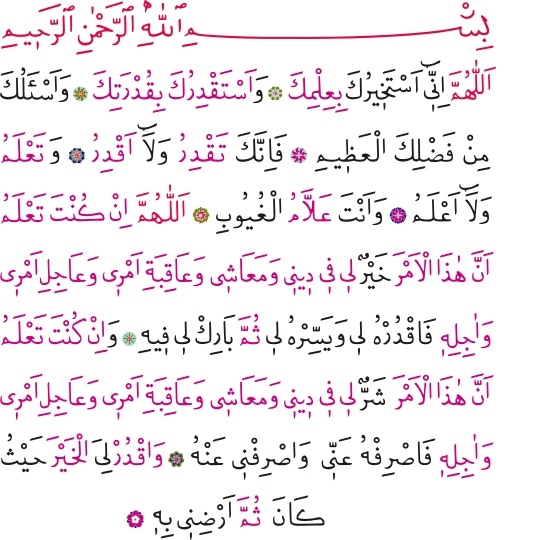 بِسْمِ اللّٰهِ الرَّحْمٰنِ الرَّحٖيمِ
اَللّٰهُمَّ اِنّٖٓي اَسْتَخٖيرُكَ بِعِلْمِكَ وَاَسْتَقْدِرُكَ بِقُدْرَتِكَ وَاَسْئَلُكَ
مِنْ فَضْلِكَ الْعَظٖيمِ فَاِنَّكَ تَقْدِرُ وَلَٓا اَقْدِرُ وَ تَعْلَمُ
وَلَٓا اَعْلَمُ وَاَنْتَ عَلَّامُ الْغُيُوبِ اَللّٰهُمَّ اِنْ كُنْتَ تَعْلَمُ
اَنَّ هٰذَا الْاَمْرَ خَيْرٌ لٖى فٖى دٖينٖى وَمَعَاشٖى وَعَاقِبَةِ اَمْرٖى وَعَاجِلِ اَمْرٖى
وَاٰجِلِهٖ فَاقْدُرْهُ لٖى وَيَسِّرْهُ لٖى ثُمَّ بَارِكْ لٖى فٖيهِ وَاِنْ كُنْتَ تَعْلَمُ
اَنَّ هٰذَا الْاَمْرَ شَرٌّ لٖى فٖى دٖينٖى وَمَعَاشٖى وَعَاقِبَةِ اَمْرٖى وَعَاجِلِ اَمْرٖى
وَاٰجِلِهٖ فَاصْرِفْهُ عَنّٖى وَاصْرِفْنٖى عَنْهُ وَاقْدُرْ لِىَ الْخَيْرَ حَيْثُ
كَانَ ثُمَّ اَرْضِنٖى بِهٖ